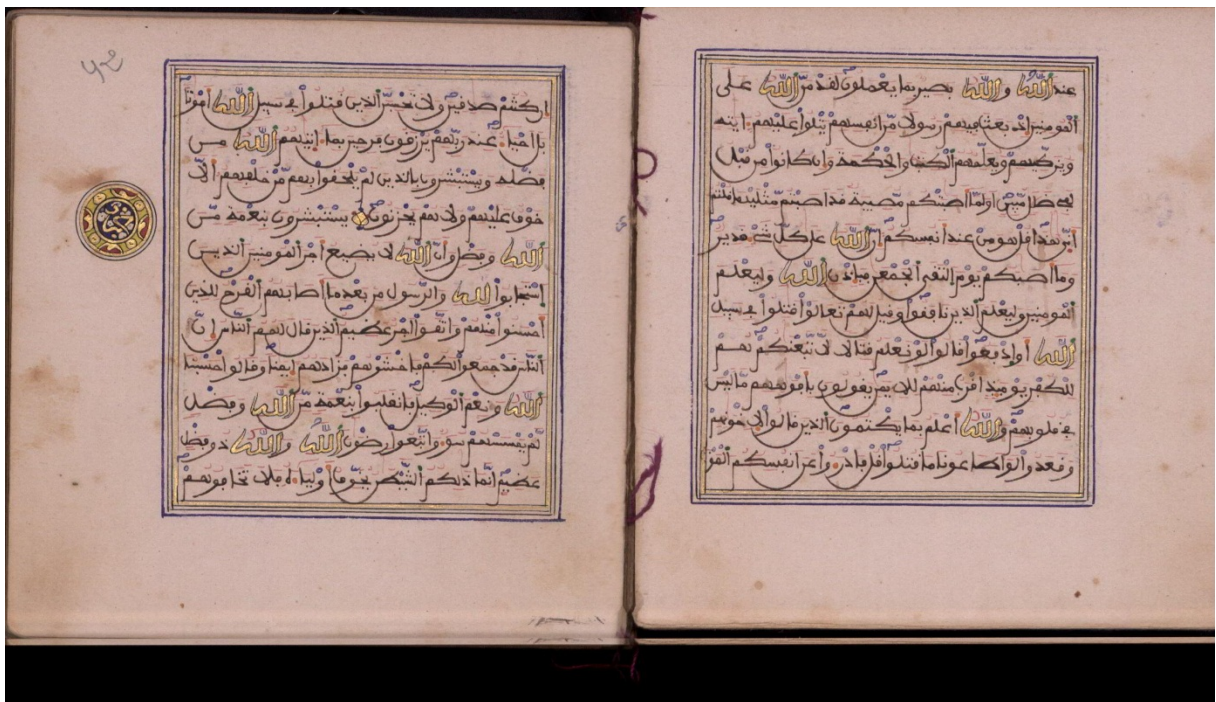 عند الله والله بصير بما يعملون لقد من الله على
المومنين اذ بعث فيهم رسولا من انفسهم يتلوا عليهم ءايته
ويزكيهم ويعلمهم الكتب والحكمة وان كانوا من قبل
لفي ضلل مبين اولما اصبتكم مصيبة قد اصبتم مثليها قلتم
انى هذا قل هو من عند انفسكم ان الله على كل شيء قدير
وما اصبكم يوم التقى الجمعن فباذن الله وليعلم
المومنين وليعلم الذين نافقوا وقيل لهم تعالوا قتلوا في سبيل
الله او ادفعوا قالوا لو نعلم قتالا لاتبعنكم هم
للكفر يومئذ اقرب منهم للايمن يقولون بافوههم ما ليس
في قلوبهم والله اعلم بما يكتمون الذين قالوا لاخونهم
وقعدوا لو اطاعونا ما قتلوا قل فادرءوا عن انفسكم الموت
ان كنتم صدقين ولا تحسبن الذين قتلوا في سبيل الله اموتا
بل احياء عند ربهم يرزقون فرحين بما ءاتيهم الله من
فضله ويستبشرون بالذين لم يلحقوا بهم من خلفهم الا
خوف عليهم ولا هم يحزنون يستبشرون بنعمة من
الله وفضل وان الله لا يضيع اجر المومنين الذين
استجابوا لله والرسول من بعد ما اصابهم القرح للذين
احسنوا منهم واتقوا اجر عظيم الذين قال لهم الناس ان
الناس قد جمعوا لكم فاخشوهم فزادهم ايمنا وقالوا حسبنا
الله ونعم الوكيل فانقلبوا بنعمة من الله وفضل
لم يمسسهم سوء واتبعوا رضون الله والله ذو فضل
عظيم انما ذلكم الشيطن يخوف اولياءه فلا تخافوهم
حزب